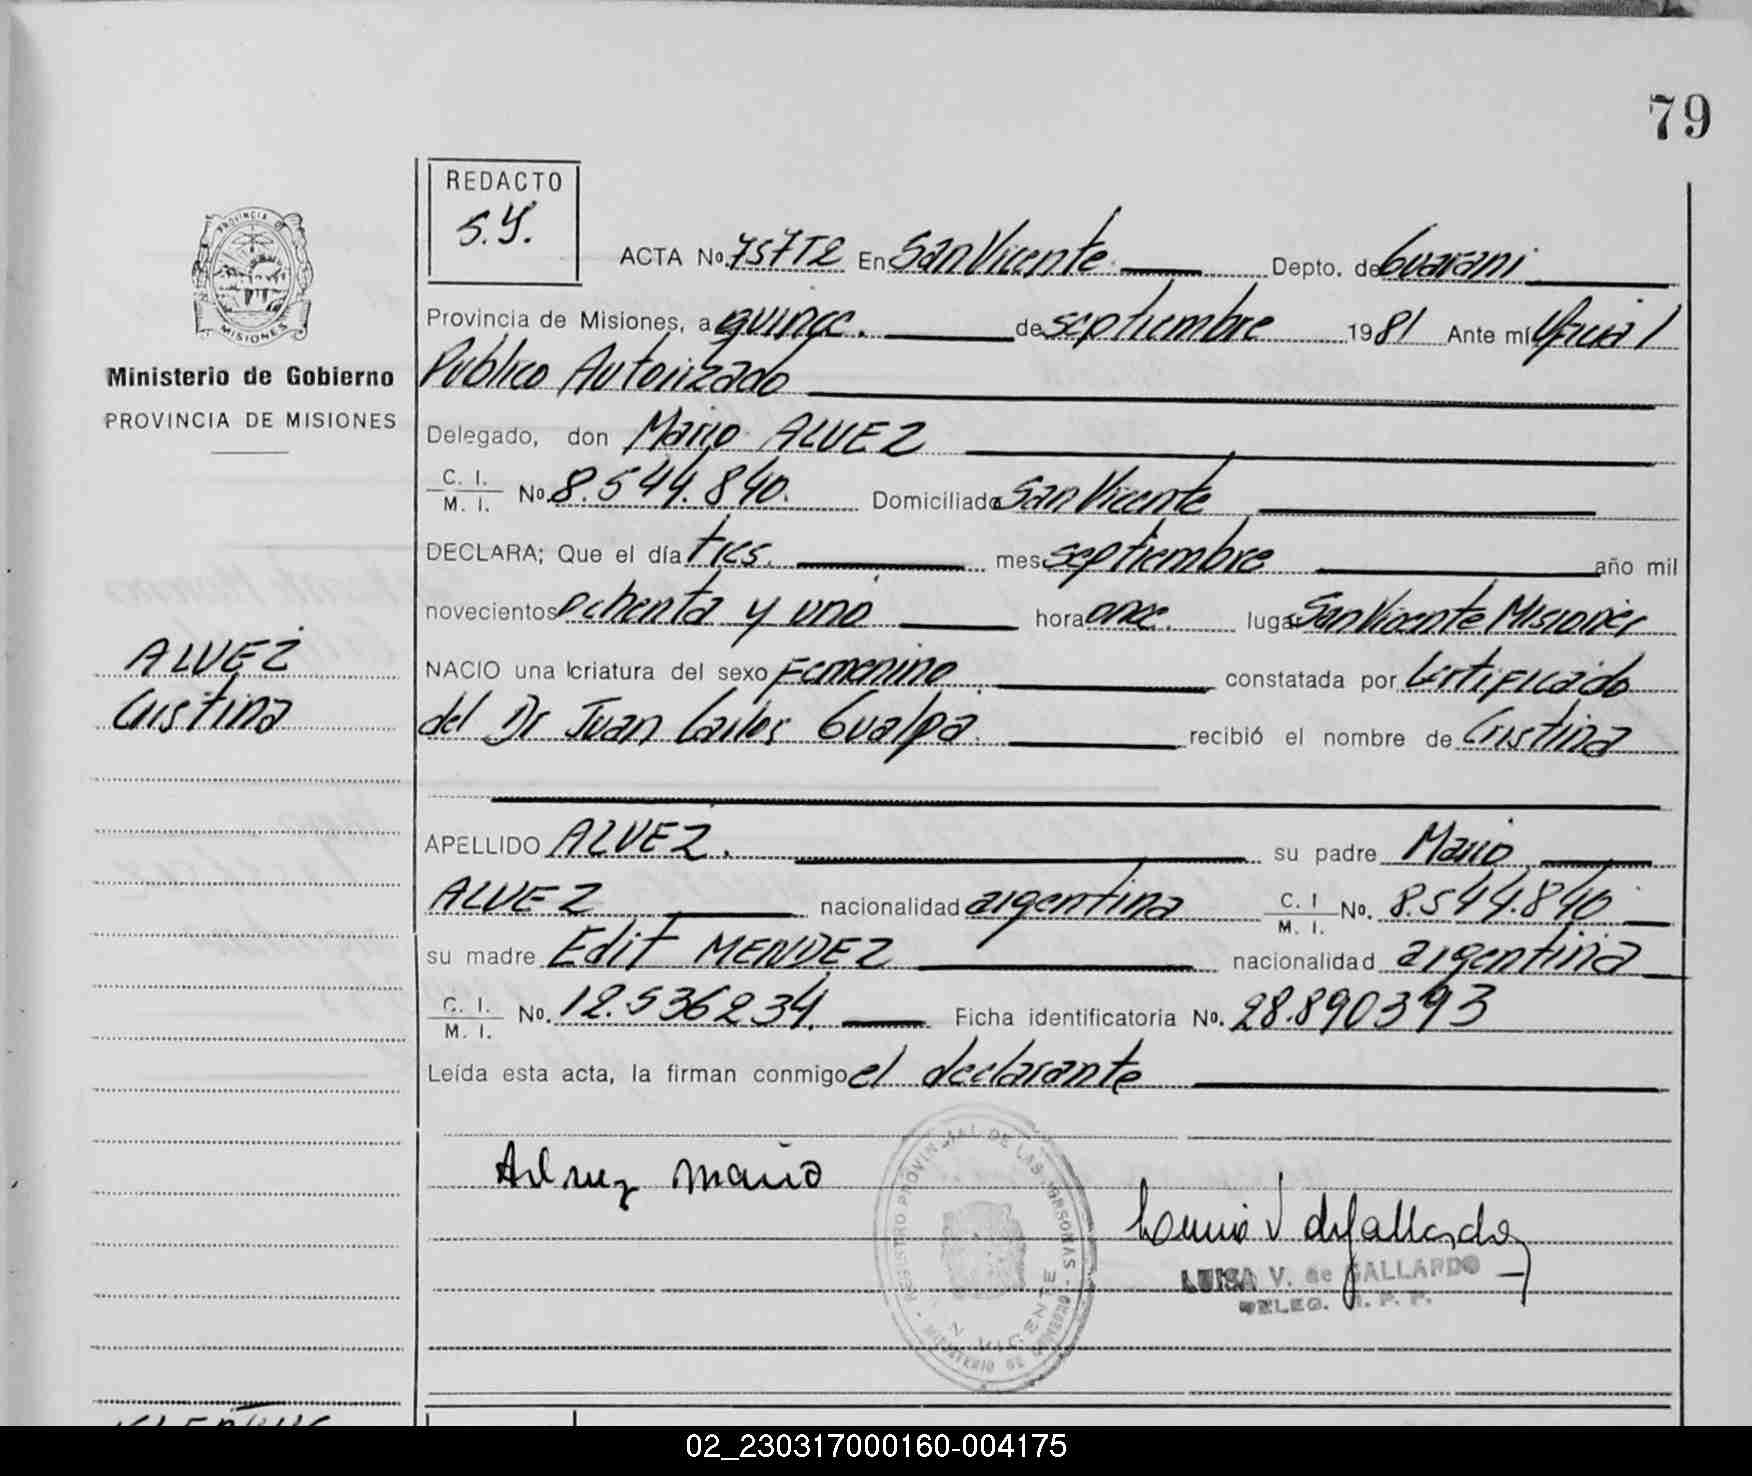 79
REDACTO
S.Y.
ACTA No. 757T2 En San Vicente Depto. de Guarani
Provincia de Misiones, a quince. de septiembre 1981 Ante mí Oficial
Público Autorizado
Delegado, don Mario ALVEZ
C. I.
M. I. No. 8.544.840. Domiciliado San Vicente
DECLARA; Que el día tres. mes septiembre año mil
novecientos ochenta y uno hora once. lugar San Vicente Misiones
NACIO una criatura del sexo Femenino constatada por Certificado
del Dr Juan Carlos Gualpa recibió el nombre de Cristina
APELLIDO ALVEZ. su padre Mario
ALVEZ nacionalidad argentina C. I
M. I. No. 8.544.840
su madre Edit MENDEZ nacionalidad argentina
C. I.
M. I. No. 12.536234. Ficha identificatoria No. 28.890393
Leída esta acta, la firman conmigo el declarante
PROVINCIA DE
MISIONES
Ministerio de Gobierno
PROVINCIA DE MISIONES
ALVEZ
Cristina
Mario
REGISTRO PROVINCIAL DE LAS PERSONAS
MINISTERIO DE GOBIERNO
VICENTE
LUISA V. de GALLARDO
DELEG. R. P. P.
02_230317000160-004175